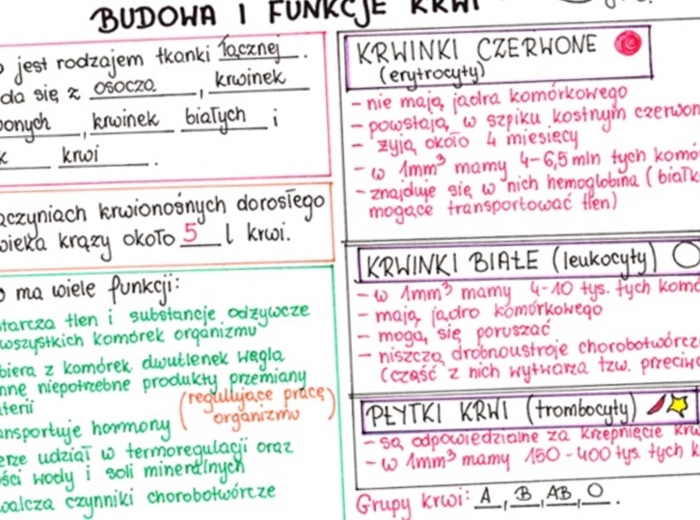 BUDOWA I FUNKCJE KRWI
jest rodzajem tkanki łącznej.
da się z osocza, krwinek
onych, krwinek białych i
k krwi.
aczyniach krwionośnych dorosłego
wieka krąży około 5 l krwi.
ma wiele funkcji:
tarcza tlen i substancje odżywcze
wszystkich komórek organizmu
biera z komórek dwutlenek węgla
nne niepotrzebne produkty przemiany
terii
ansportuje hormony (regulujące pracę organizmu)
erze udział w termoregulacji oraz
ości wody i soli mineralnych
walcza czynniki chorobotwórcze
KRWINKI CZERWONE
(erytrocyty)
- nie mają jądra komórkowego
- powstają w szpiku kostnym czerwon
- żyją około 4 miesięcy
- w 1mm³ mamy 4-6,5 mln tych komó
- znajduje się w nich hemoglobina (białk
mogące transportować tlen)
KRWINKI BIAŁE (leukocyty)
- w 1mm³ mamy 4-10 tys. tych komó
- mają jądro komórkowe
- mogą się poruszać
- niszczą drobnoustroje chorobotwórcz
(część z nich wytwarza tzw. przeciw
PŁYTKI KRWI (trombocyty)
- są odpowiedzialne za krzepnięcie krw
- w 1mm³ mamy 150-400 tys. tych k
Grupy krwi: A, B, AB, O.